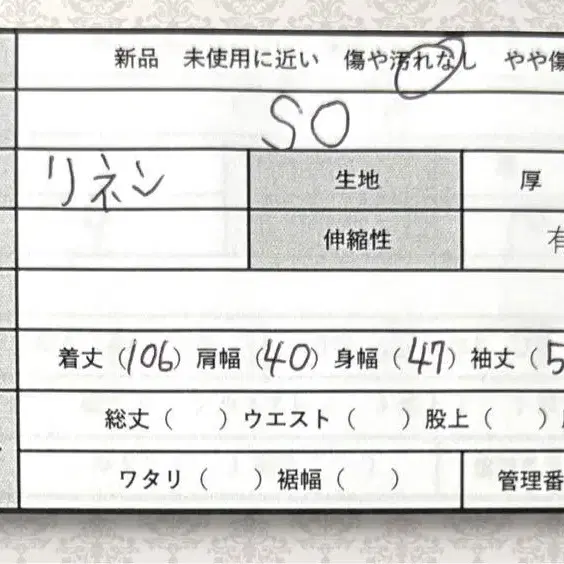 新品 未使用に近い 傷や汚れなし やや傷
SO
リネン 生地 厚
伸縮性 有
着丈 (106) 肩幅 (40) 身幅 (47) 袖丈 (5
総丈 ( ) ウエスト ( ) 股上 ( )
ワタリ ( ) 裾幅 ( ) 管理番